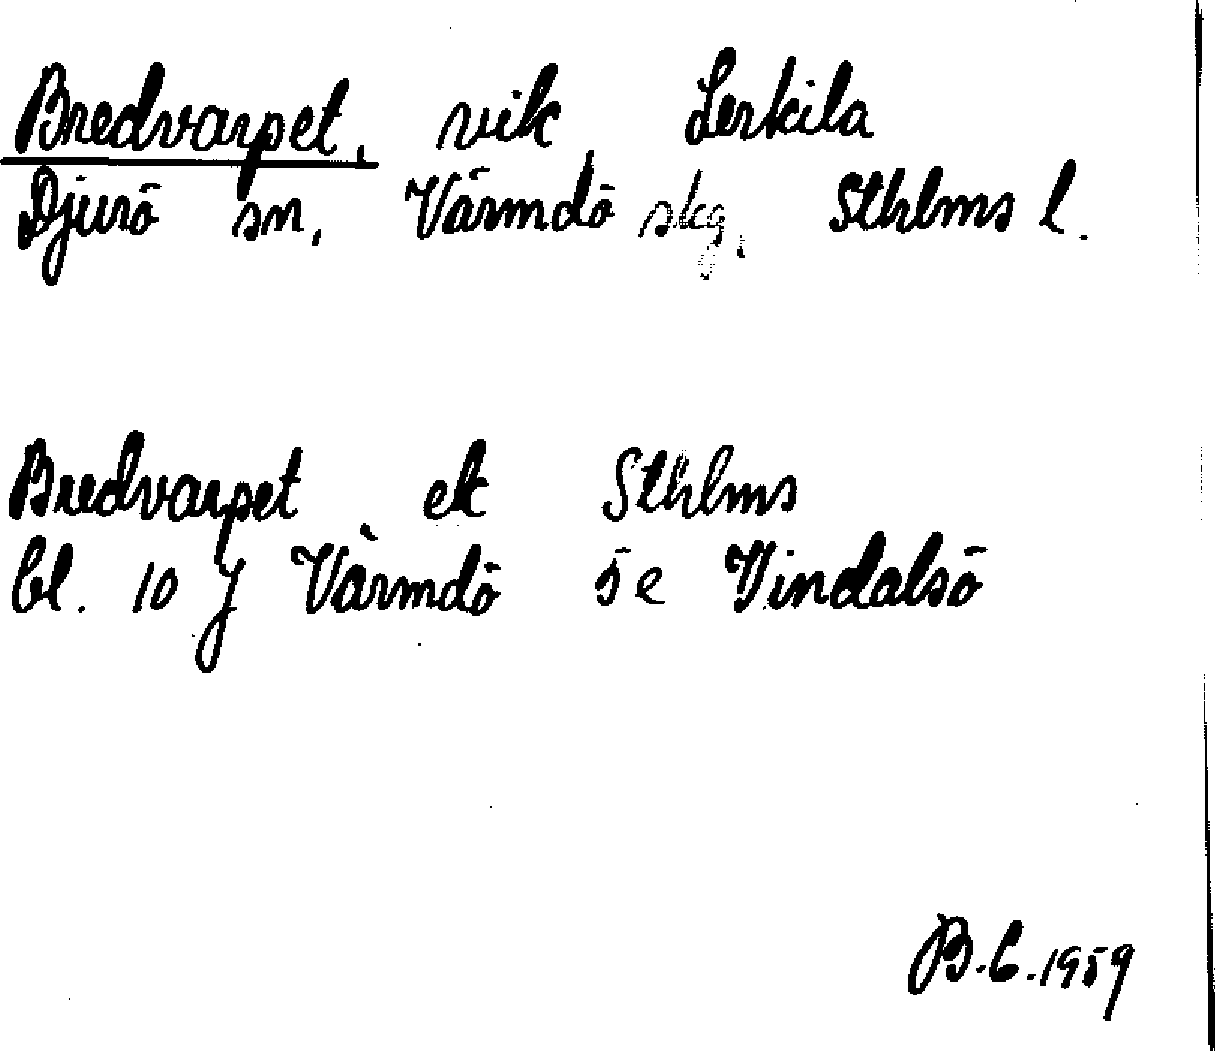 Bredvarpet, vik Lerkila
Djurö sn, Värmdö skg, Sthlms l.
Bredvarpet ek Sthlms
bl. 10 J Värmdö 5 e Vindalsö
B.C.1959